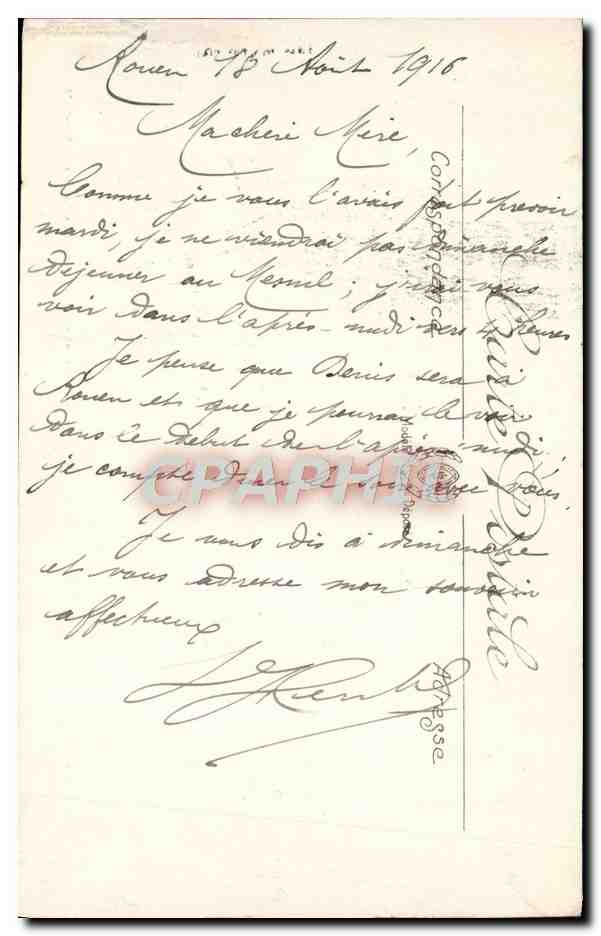 Rouen 18 Août 1916
Ma chère Mère,
Comme je vous l'avais fait prévoir
mardi, je ne viendrai pas dimanche
déjeuner au Mesnil ; j'irai vous
voir dans l'après-midi vers 4 heures
Je pense que Denis sera à
Rouen et que je pourrai le voir
dans le début de l'après-midi,
je compte diner le soir avec vous.
Je vous dis à dimanche
et vous adresse mon souvenir
affectueux
Correspondance
Carte Postale
Adresse
CPAPHIL